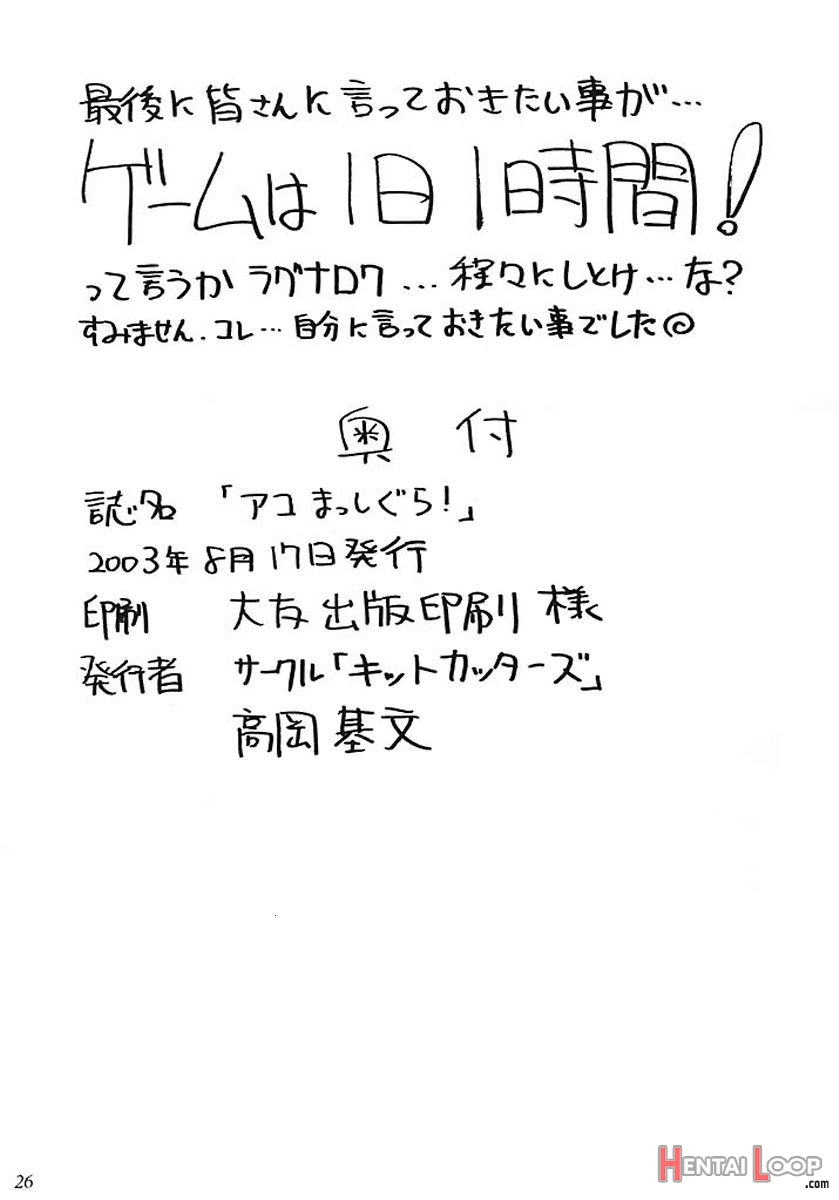 最後に皆さんに言っておきたい事が…
ゲームは1日1時間!
って言うかラグナロク…程々にしとけ…な?
すみません.コレ…自分に言っておきたい事でした
奥付
誌名 「アコまっしぐら!」
2003年8月17日発行
印刷 大友出版印刷様
発行者 サークル「キットカッターズ」
高岡基文
26
HENTAI LOOP
.com